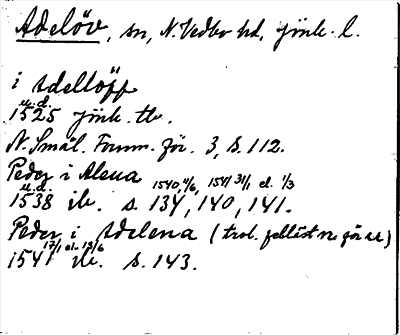 Adelöv, sn, N. Vedbo hd, Jönk. l.
i Adellöff
u.d.
1525 Jönk. tb.
N. Smål. Fornm. för. 3, s. 112.
Peder i Alena
u.d. 1540, 4/6, 1541 31/1 el. 1/3
1538 ib. s. 134, 140, 141.
Peder i Adelena (trol. felläst n för u)
17/1 el. 15/6
1541 ib. s. 143.